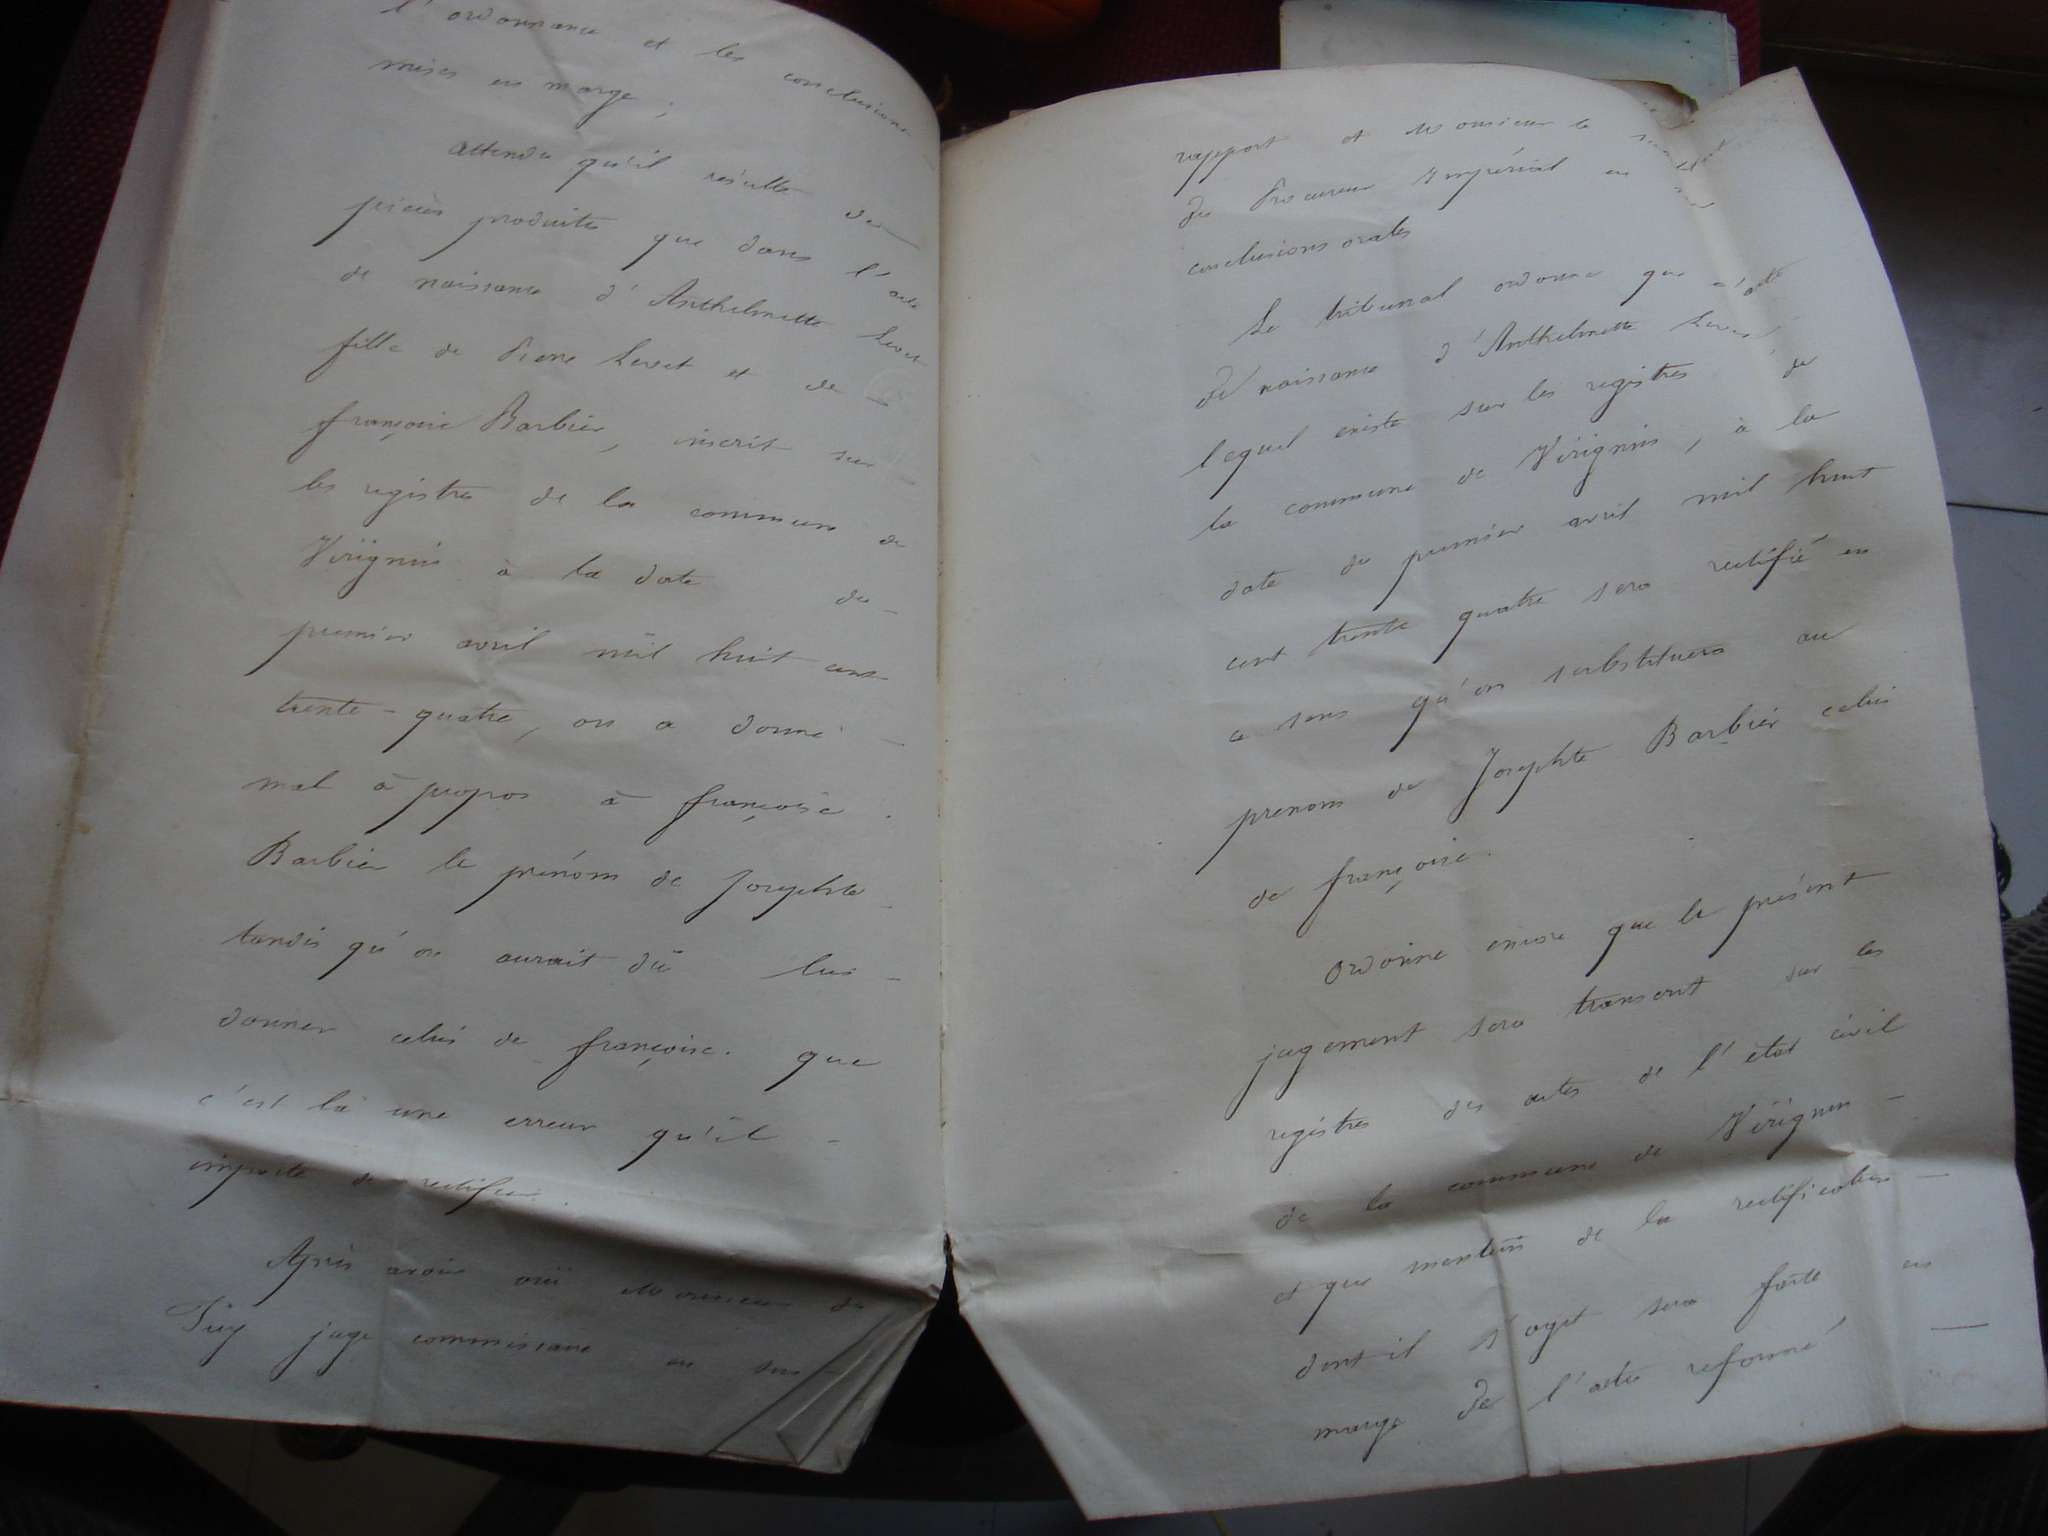 l'ordonnance et les conclusions
mises en marge ;
attendu qu'il résulte des
pièces produites que dans l'acte
de naissance d'Anthelmette Levet
fille de Pierre Levet et de
françoise Barbier, inscrit sur
les registres de la commune de
Virignin à la date du
premier avril mil huit cent
trente-quatre, on a donné
mal à propos à françoise
Barbier le prénom de Josephte
tandis qu'on aurait dû lui
donner celui de françoise. que
c'est là une erreur qu'il
importe de rectifier.
Après avoir ouï Monsieur du
juge commissaire en son
rapport et Monsieur le
du Procureur Impérial en ses
conclusions orales
Le tribunal ordonne que l'acte
de naissance d'Anthelmette Levet
lequel existe sur les registres de
la commune de Virignin, à la
date du premier avril mil huit
cent trente quatre sera rectifié en
ce sens qu'on substituera au
prenom de Josephte Barbier celui
de françoise.
Ordonne encore que le présent
jugement sera transcrit sur les
registres des actes de l'état civil
de la commune de Virignin
et que mention de la rectification
dont il s'agit sera faite en
marge de l'acte reformé